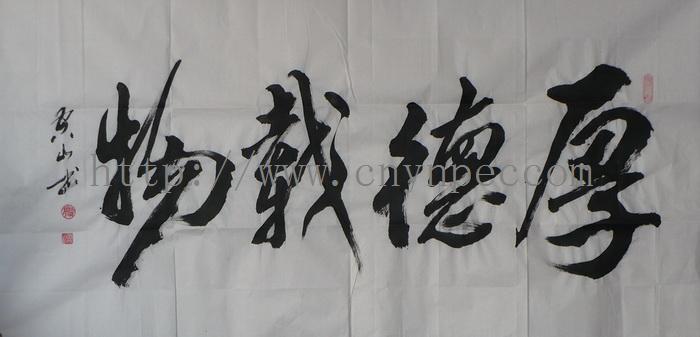 厚德载物
http://www.cnynpec.com